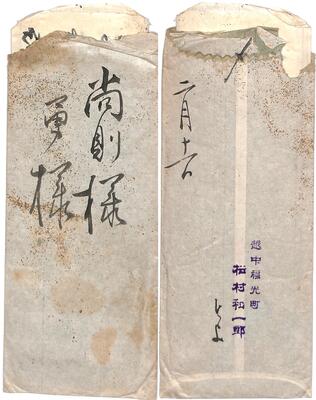 尚則様
勇様
〆
二月十一日
越中福光町
松村和一郎
とよ